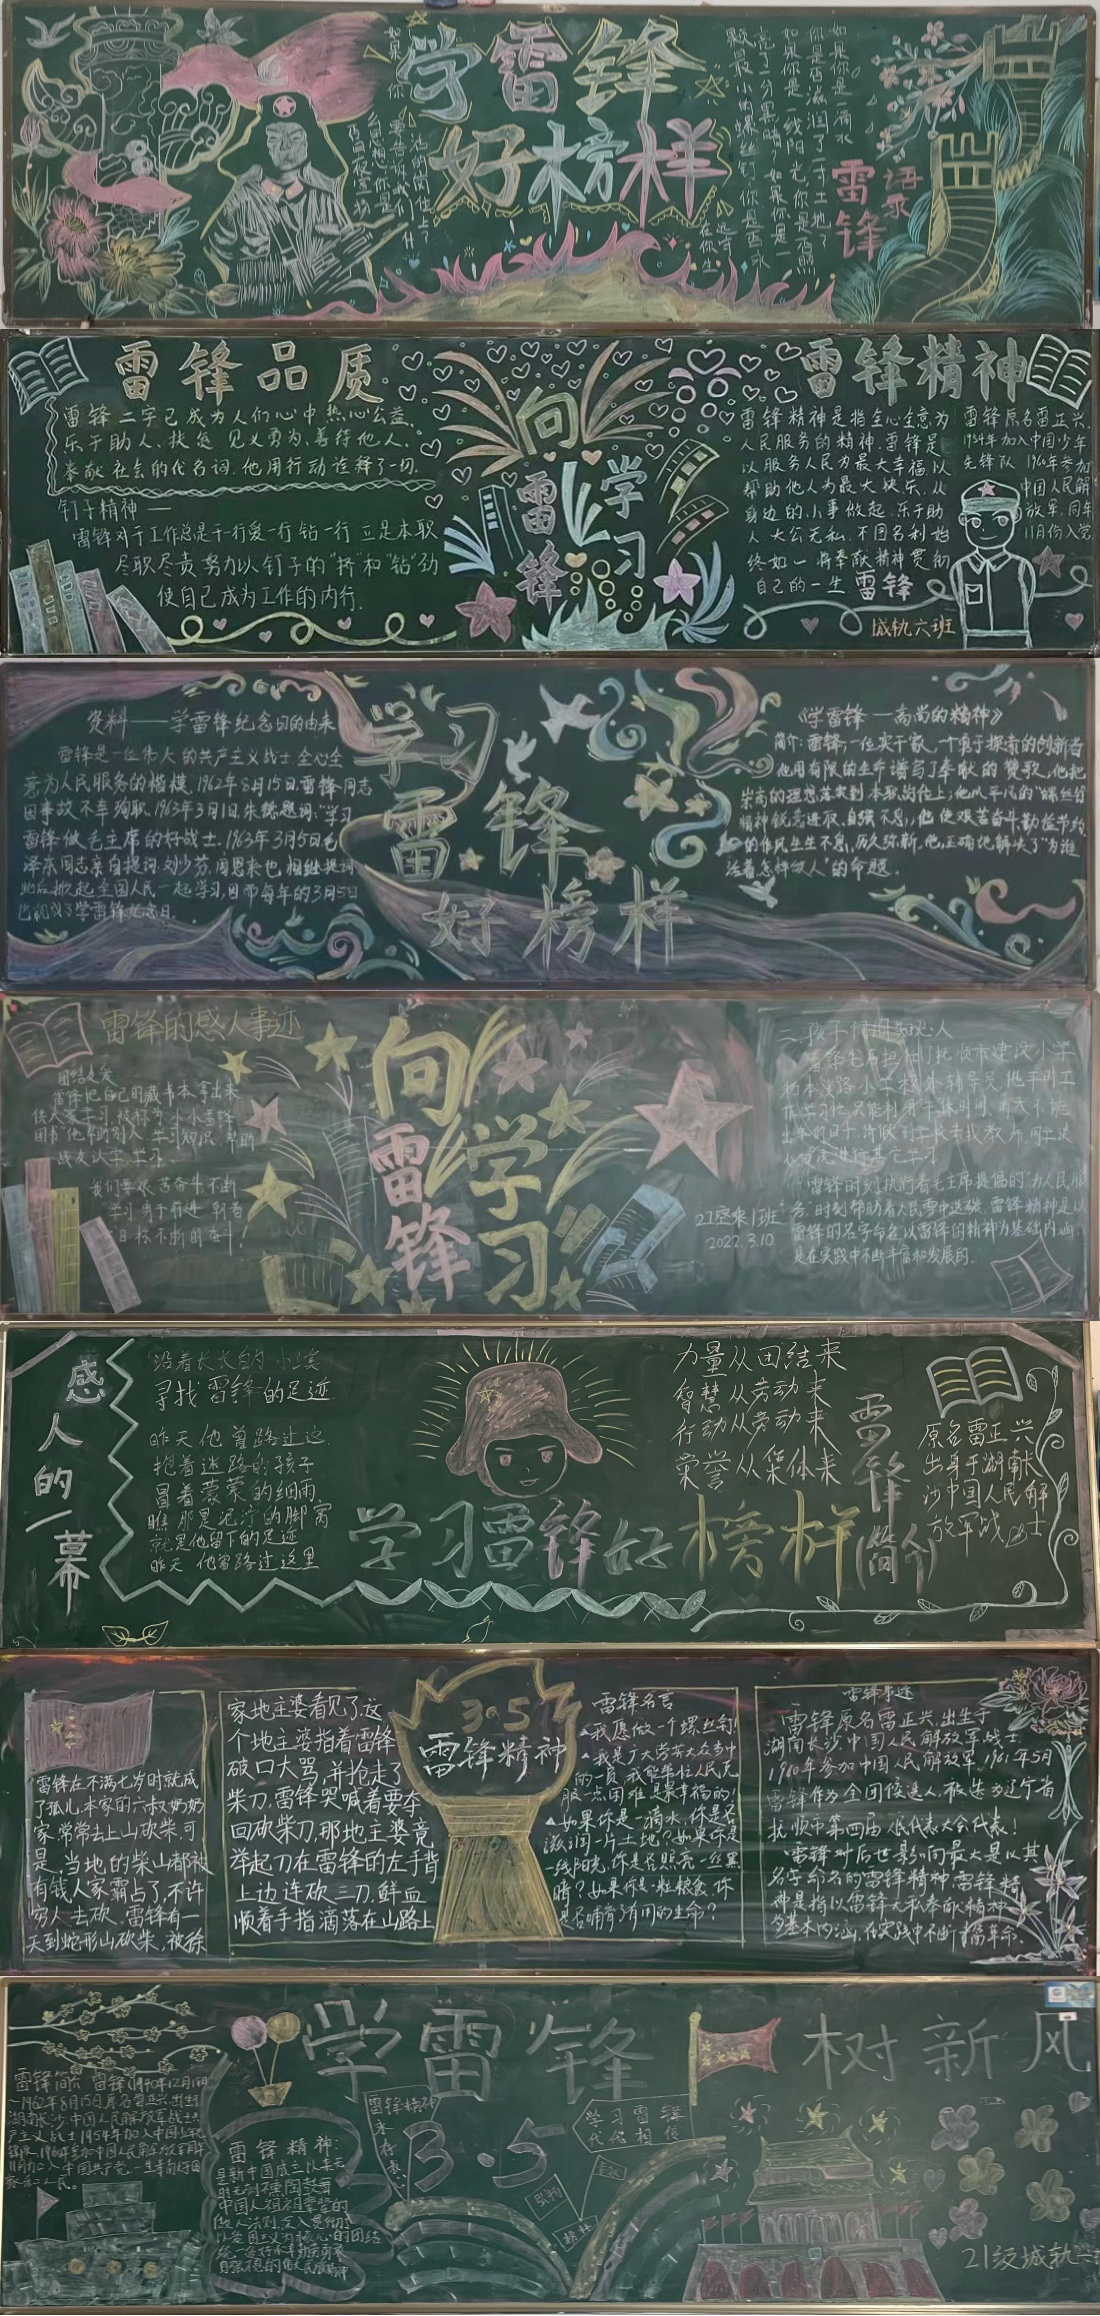 学雷锋
好榜样
如果你是一滴水
你是否滋润了一寸土地？
如果你是一线阳光你是否照
亮了一分黑暗？如果你是一
颗最小的螺丝钉你是否永
雷锋
语录
雷锋品质
雷锋二字已成为人们心中热心公益，
乐于助人，扶贫 见义勇为，善待他人，
奉献社会的代名词，他用行动诠释了一切．
钉子精神—
雷锋对于工作总是干一行爱一行 钻一行 立足本职
尽职尽责 努力以钉子的“挤”和“钻”劲
使自己成为工作的内行．
向
雷锋
学习
雷锋精神
雷锋精神是指全心全意为
人民服务的精神，雷锋是
以服务人民为最大幸福，以
帮助他人为最大快乐，从
身边的小事做起，乐于助
人，大公无私，不图名利 始
终如一，将奉献精神贯彻
自己的一生 雷锋
雷锋原名雷正兴，
1954年加入中国少年
先锋队 1960年参加
中国人民解
放军，同年
11月份入党
城轨六班
资料——学雷锋纪念日的由来
雷锋是一位伟大的共产主义战士 全心全
意为人民服务的楷模，1962年8月15日雷锋同志
因事故不幸殉职，1963年3月1日朱德题词：“学习
雷锋 做毛主席的好战士．1963年3月5日毛
泽东同志亲自提词．刘少奇，周恩来也相继提词
此后掀起全国人民一起学习，因而每年的3月5日
也就成了学雷锋纪念日．
学习
雷锋
好榜样
《学雷锋—高尚的精神》
简介：雷锋，一位实干家，一个勇于探索的创新者
他用有限的生命谱写了奉献的赞歌，他把
崇高的理想落实到本职岗位上；他以平凡的“螺丝钉
精神锐意进取，自强不息，他使艰苦奋斗，勤俭节约
的作风生生不息，历久弥新，他正确地解决了“为谁
活着，怎样做人”的命题．
雷锋的感人事迹
团结友爱
雷锋把自己的藏书本拿出来
供大家学习，被称为“小小雷锋
战友认字学习．
我们要艰苦奋斗，不断
学习，勇于前进，朝着
目标不断的奋斗！
向
雷锋
学习
21空乘1班
2022.3.10
二．孩子们的知心人
雷锋先后担任了抚顺市建设小学
和本溪路小学校外辅导员，他平时工
雷锋时刻执行着毛主席提倡的“为人民服
务，时刻帮助着人民雪中送碳，雷锋精神是以
雷锋的名字命名以雷锋的精神为基础内涵，
是在实践中不断丰富和发展的．
感人的一幕
沿着长长的 小溪
寻找 雷锋的足迹
昨天 他曾路过这
抱着迷路的孩子
冒着蒙蒙的细雨
瞧 那是泥泞的脚窝
就是他留下的足迹
昨天 他曾路过这里
学习雷锋好榜样
力量从团结来
智慧从劳动来
行动从劳动来
荣誉从集体来
雷锋
(简介)
原名雷正兴
出身于湖南长
沙中国人民解
放军战士
雷锋在不满七岁时就成
了孤儿，本家的六叔奶奶
家，常常去上山砍柴，可
是，当地的柴山都被
有钱人家霸占了，不许
穷人去砍，雷锋有一
天到蛇形山砍柴，被徐
家地主婆看见了，这
个地主婆指着雷锋
破口大骂，并抢走了
柴刀，雷锋哭喊着要夺
回砍柴刀，那地主婆竟
举起刀在雷锋的左手背
上边连砍三刀，鲜血
顺着手指滴落在山路上
3·5
雷锋精神
雷锋名言
我愿做一个螺丝钉！
如果你是一滴水，你是否
滋润一片土地？如果你是
一线阳光，你是否照亮一丝黑
暗？如果你是一粒粮食，你
是否哺育了有用的生命？
雷锋事迹
雷锋原名雷正兴，出生于
湖南长沙，中国人民解放军战士
1960年参加中国人民解放军，1961年5月
雷锋作为全团候选人，被选为辽宁省
抚顺市第四届人民代表大会代表！
雷锋对后世影响最大是以其
名字命名的雷锋精神，雷锋精
神是指以雷锋大私奉献精神
为基本内涵，在实践中不断丰富革命．
学雷锋 树新风
雷锋简介 雷锋（1940年12月18日
—1962年8月15日，原名雷正兴，出生
湖南长沙，中国人民解放军战士共
产主义战士 1954年加入中国少先
雷锋精神：
是新中国成立以来无
中国人
以爱国主义为核心的团结
雷锋精神
永存
3·5
学习雷锋
21级城轨